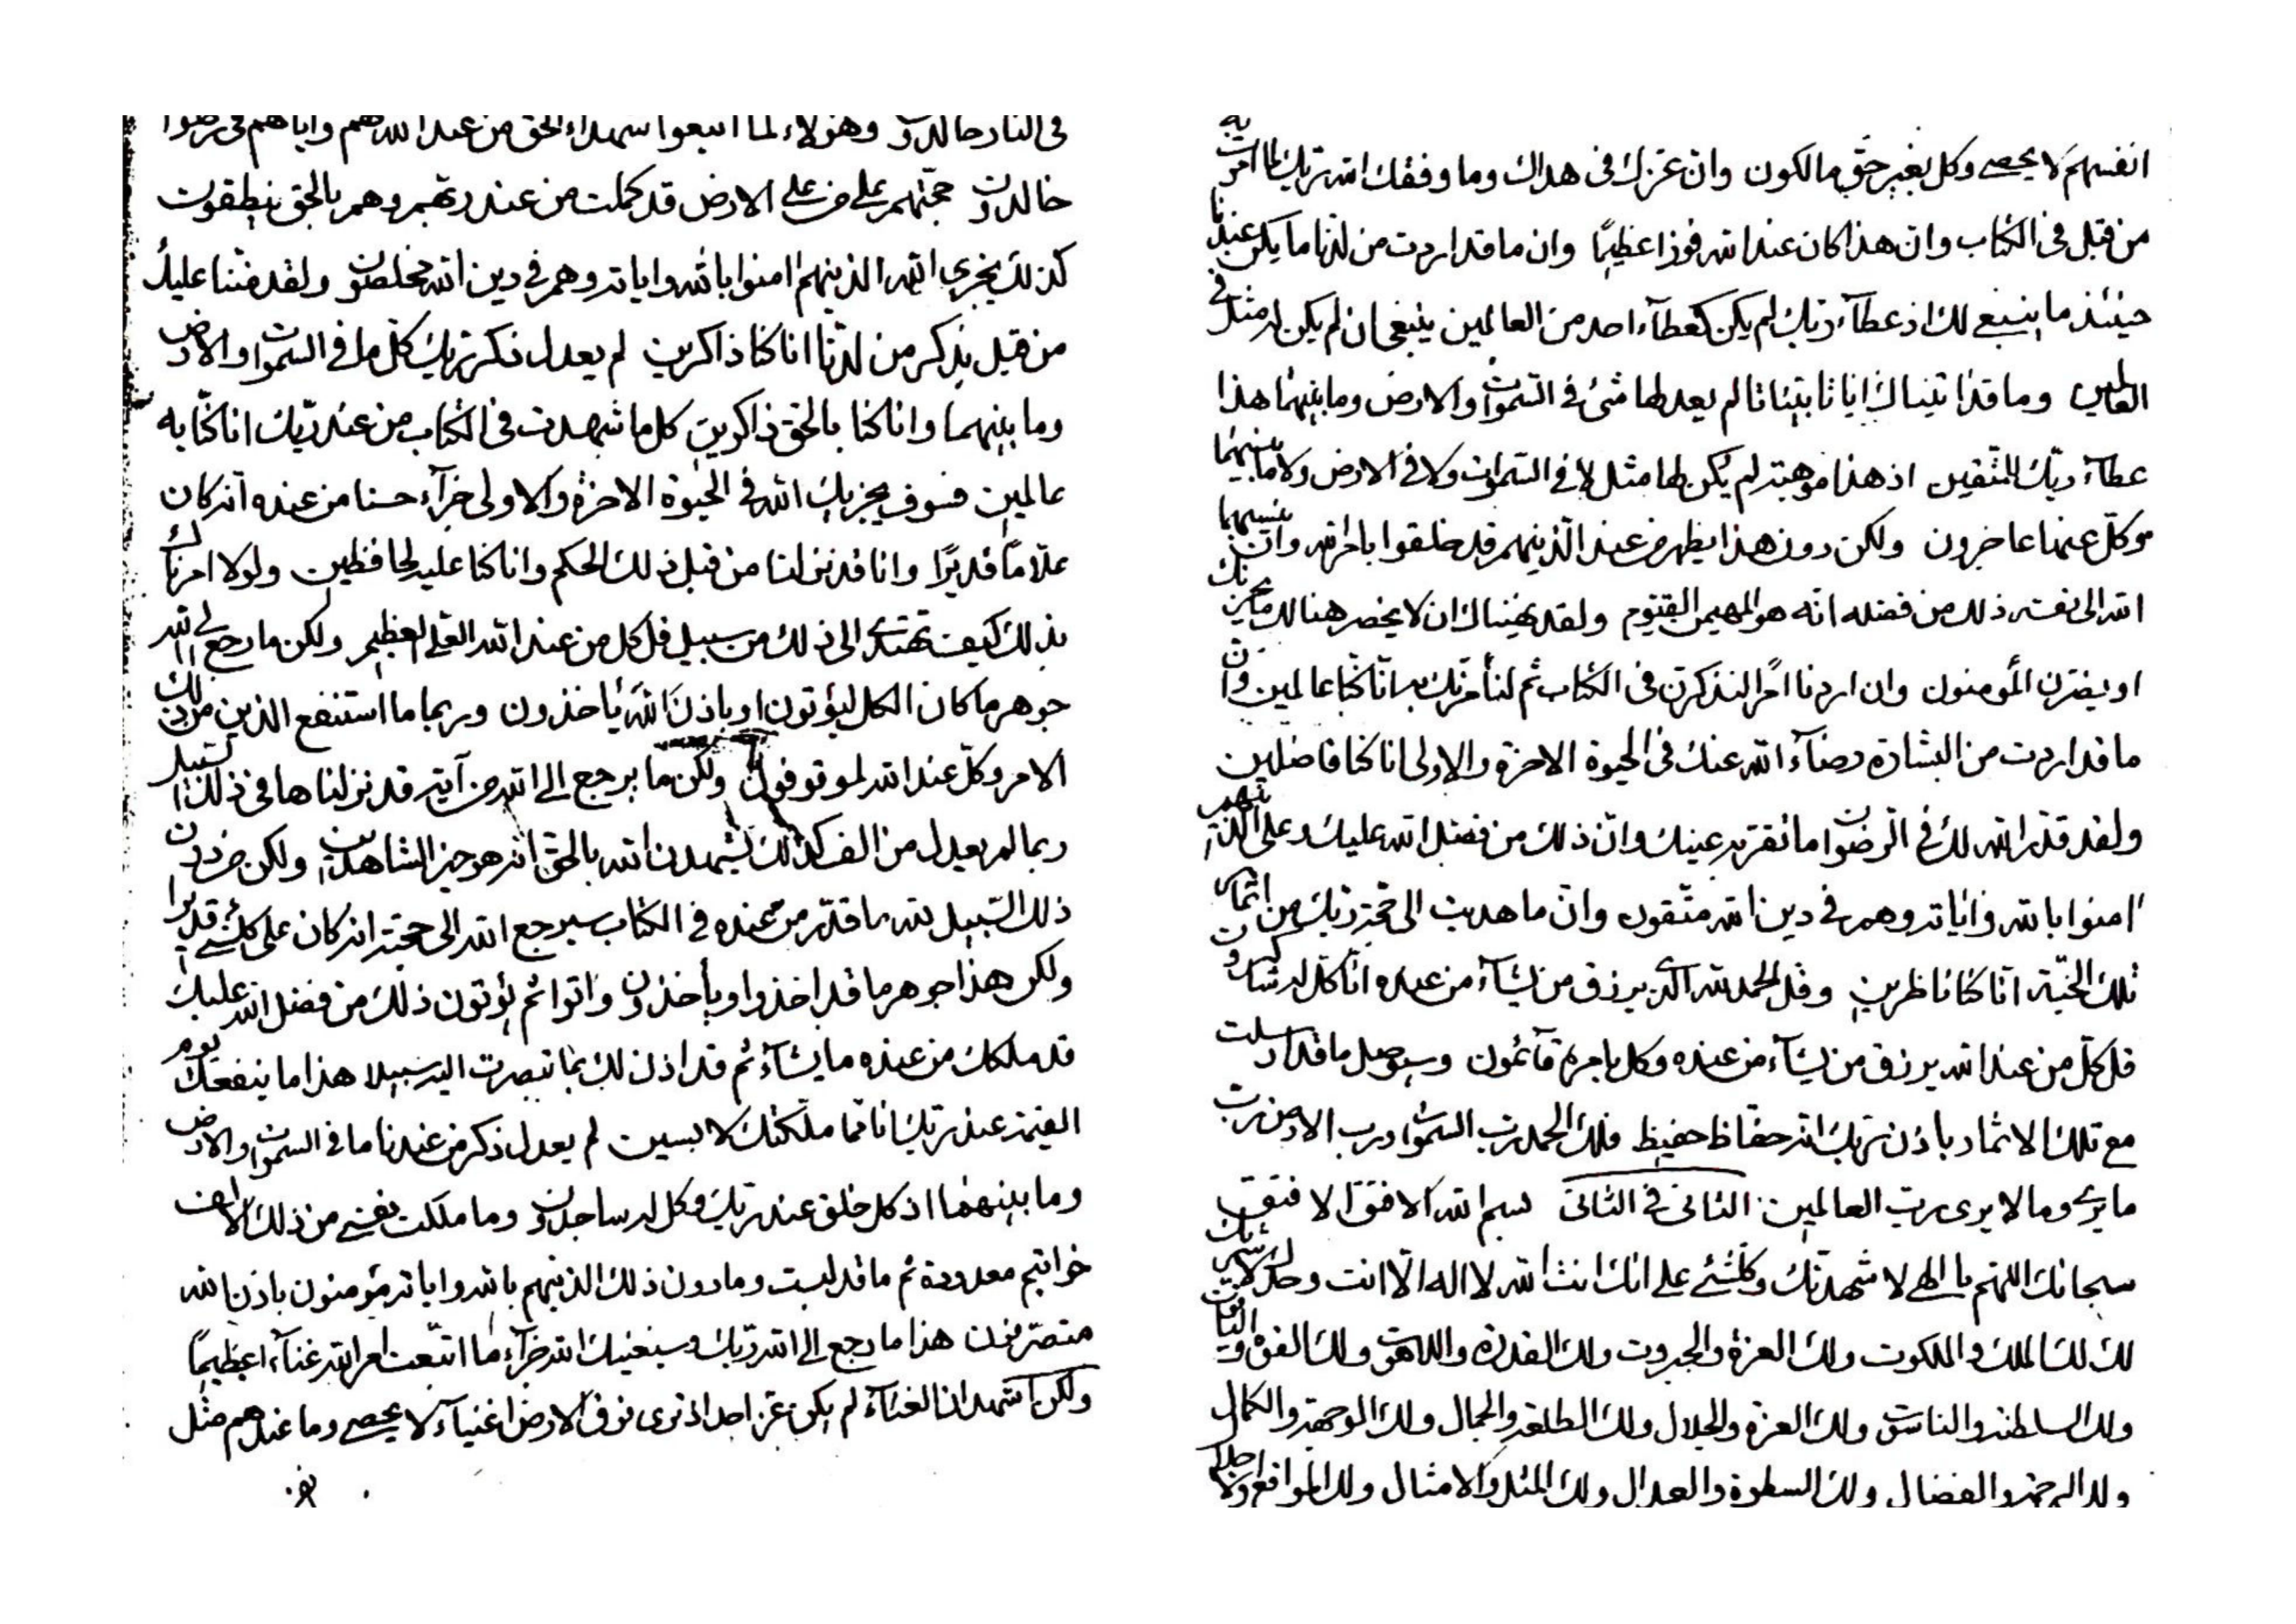 في النار خالدون وهؤلاء لما اتبعوا شهداء الحق من عند الله هم واياهم في رضوان
خالدون حجتهم على من على الارض قد كملت من عند ربهم وهم بالحق ينطقون
كذلك يجزي الله الذينهم امنوا بالله واياته وهم في دين الله مخلصون ولقد مننا عليك
من قبل بذكر من لدنا انا كنا ذاكرين لم يعدل ذكر ربك كل ما في السموات والارض
وما بينهما وانا كنا بالحق ذاكرين كل ما شهدت في الكتاب من عند ربك انا كنا به
عالمين فسوف يجزيك الله في الحيوة الاخرة والاولى جزآء حسنا من عنده انه كان
علاما قديرا وانا قد نزلنا من قبل ذلك الحكم وانا كنا عليه لحافظين ولولا امرناك
بذلك كيف تهتدى الى ذلك من سبيل قل كل من عند الله العلى العظيم ولكن ما رجع الى الله
جوهر ما كان الكل ليؤتون او باذن الله يأخذون وربما ما استنفع الذين من دون ذلك
الامر وكل عند الله لموتوفون ولكن ما يرجع الى الله من آية قد نزلناها في ذلك السبيل
ربما لم يعدل من الف كذلك يشهدن الله بالحق انه هو خير الشاهدين ولكن من دون
ذلك السبيل لله ما قدر من عنده في الكتاب سيرجع الله الى حجته انه كان على كل شئ قديرا
ولكن هذا جوهر ما قد اخذوا ويأخذون واتوا ثم يؤتون ذلك من فضل الله عليك
قد ملكك من عنده ما يشآء ثم قد اذن لك بما تبصرت اليه سبيلا هذا ما ينفعك يوم
القيمة عند ربك انا مما ملكتك لابسين لم يعدل ذكر من عندنا ما في السموات والارض
وما بينهما اذ كل خلق عند ربك وكل له ساجدون وما ملكت نفسى من ذلك الا الف
خواتيم معدودة ثم ما قد لبست وما دون ذلك الذينهم بالله واياته مؤمنون باذن الله
متصرفون هذا ما رجع الى الله ربك وسيغنيك الله جزآء ما اتبعت امر الله غنآء عظيما
ولكن اشهد ان الغنآء لم يكن عز احد اذ ترى فوق الارض اغنيآء لا يحصى وما عندهم مثل
انفسهم لا يحصى وكل بغير حق مالكون وان عزك في هداك وما وفقك الله ربك لما امرت به
من قبل في الكتاب وان هذا كان عند الله فوزا عظيما وان ما قد اردت من لدنا ما يكن عندنا
حينئذ ما ينبغي لك اذ عطآء ربك لم يكن كعطآء احد من العالمين ينبغى ان لم يكن له مثل في
العالمين وما قد اتيناك ايانا بينانا لم يعدلها شئ في السموات والارض وما بينهما هذا
عطآء ربك للمتقين اذ هذا موهبة لم يكن لها مثل لا في السموات ولا في الارض ولا ما بينهما
وكل عنها عاجزون ولكن دون هذا يظهر من عند الذينهم قد خلقوا بامر الله وان ينسبهما
الله الى نفسه ذلك من فضله انه هو المهيمن القيوم ولقد نهيناك ان لا يحضر هنالك ما يحزنك
او يضرن المؤمنون وان اردنا امرا لنذكرن في الكتاب ثم لنأمرنك به انا كنا عالمين وان
ما قد اردت من البشارة رضآء الله عنك في الحيوة الاخرة والاولى انا كنا فاضلين
ولقد قدر الله لك في الرضوان ما تقر به عينيك وان ذلك من فضل الله عليك وعلى الذينهم
امنوا بالله واياته وهم في دين الله متقون وان ما هديت الى حجة ربك من اثمار
تلك الجنة انا كنا ناظرين وقل الحمد لله الذي يرزق من يشآء من عباده انا كل له شاكرون
قل كل من عند الله يرزق من يشآء من عنده وكل بامره قآئمون وسيوصل ما قد ارسلت
مع تلك الاثمار باذن ربك انه حفاظ حفيظ فلله الحمد رب السموات ورب الارض رب
ما يرى وما لا يرى رب العالمين الثاني في الثاني بسم الله الافقق الافقق
سبحانك اللهم يا الهى لاشهدنك وكلشئ على انك انت الله لا اله الا انت وحدك لا شريك
لك لك الملك والملكوت ولك العزة والجبروت ولك القدرة واللاهوت ولك القوة والياقوت
ولك السلطنة والناسوت ولك العزة والجلال ولك الطلعة والجمال ولك الوجهة والكمال
ولك الرحمة والفضال ولك السطوة والعدال ولك المثل والامثال ولك المواقع والاجلال